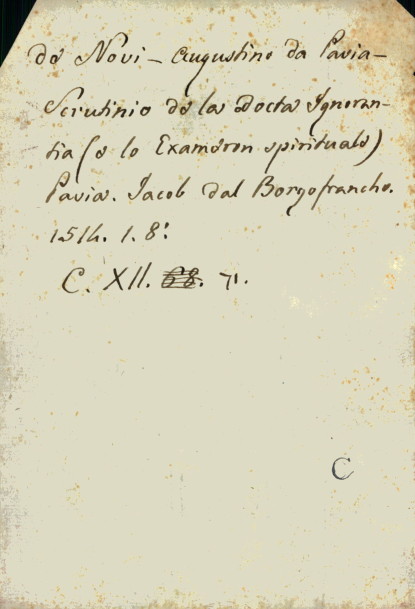 de Novi - Augustino da Pavia -
Scrutinio de la Docta Ignoran-
tia (e lo Exameron spirituale)
Pavia. Jacob dal Borgofrancho.
1514. 1. 8º
C. XII. 68. 71.
C